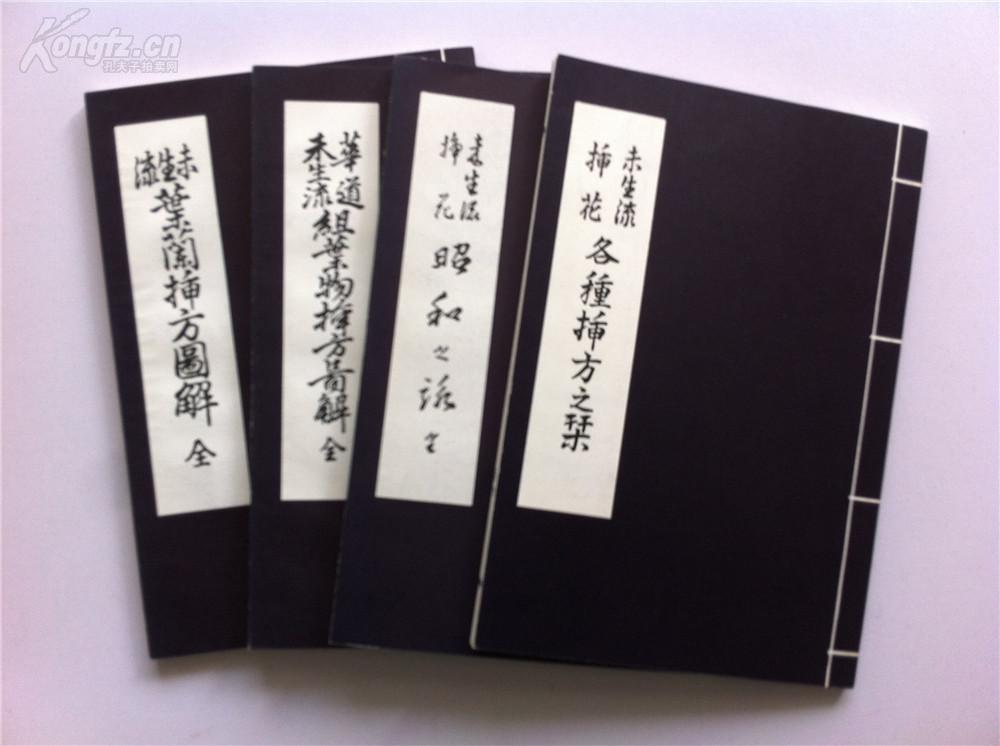 Kongfz.cn
孔夫子拍卖网
未生流
葉蘭挿方圖解 全
華道
未生流
組葉物挿方昌解 全
未生流
挿花
昭和之詠 全
未生流
挿花
各種挿方之栞